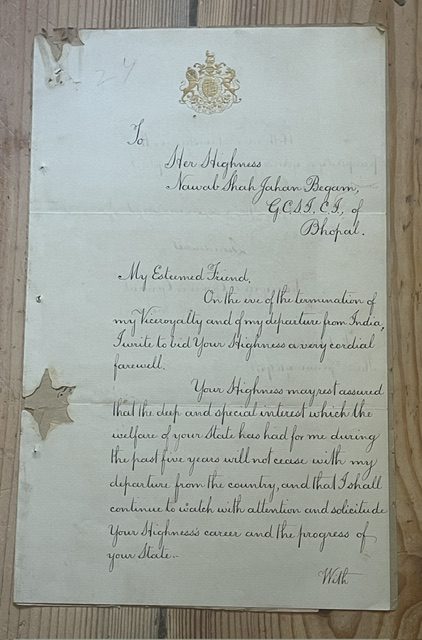 24
To
Her Highness
Nawab Shah Jahan Begam,
G.C.S.I., C.I., of
Bhopal.
My Esteemed Friend,
On the eve of the termination of
my Viceroyalty and of my departure from India,
I write to bid Your Highness a very cordial
farewell.
Your Highness may rest assured
that the deep and special interest which the
welfare of your State has had for me during
the past five years will not cease with my
departure from the country, and that I shall
continue to watch with attention and solicitude
Your Highness's career and the progress of
your State.
With